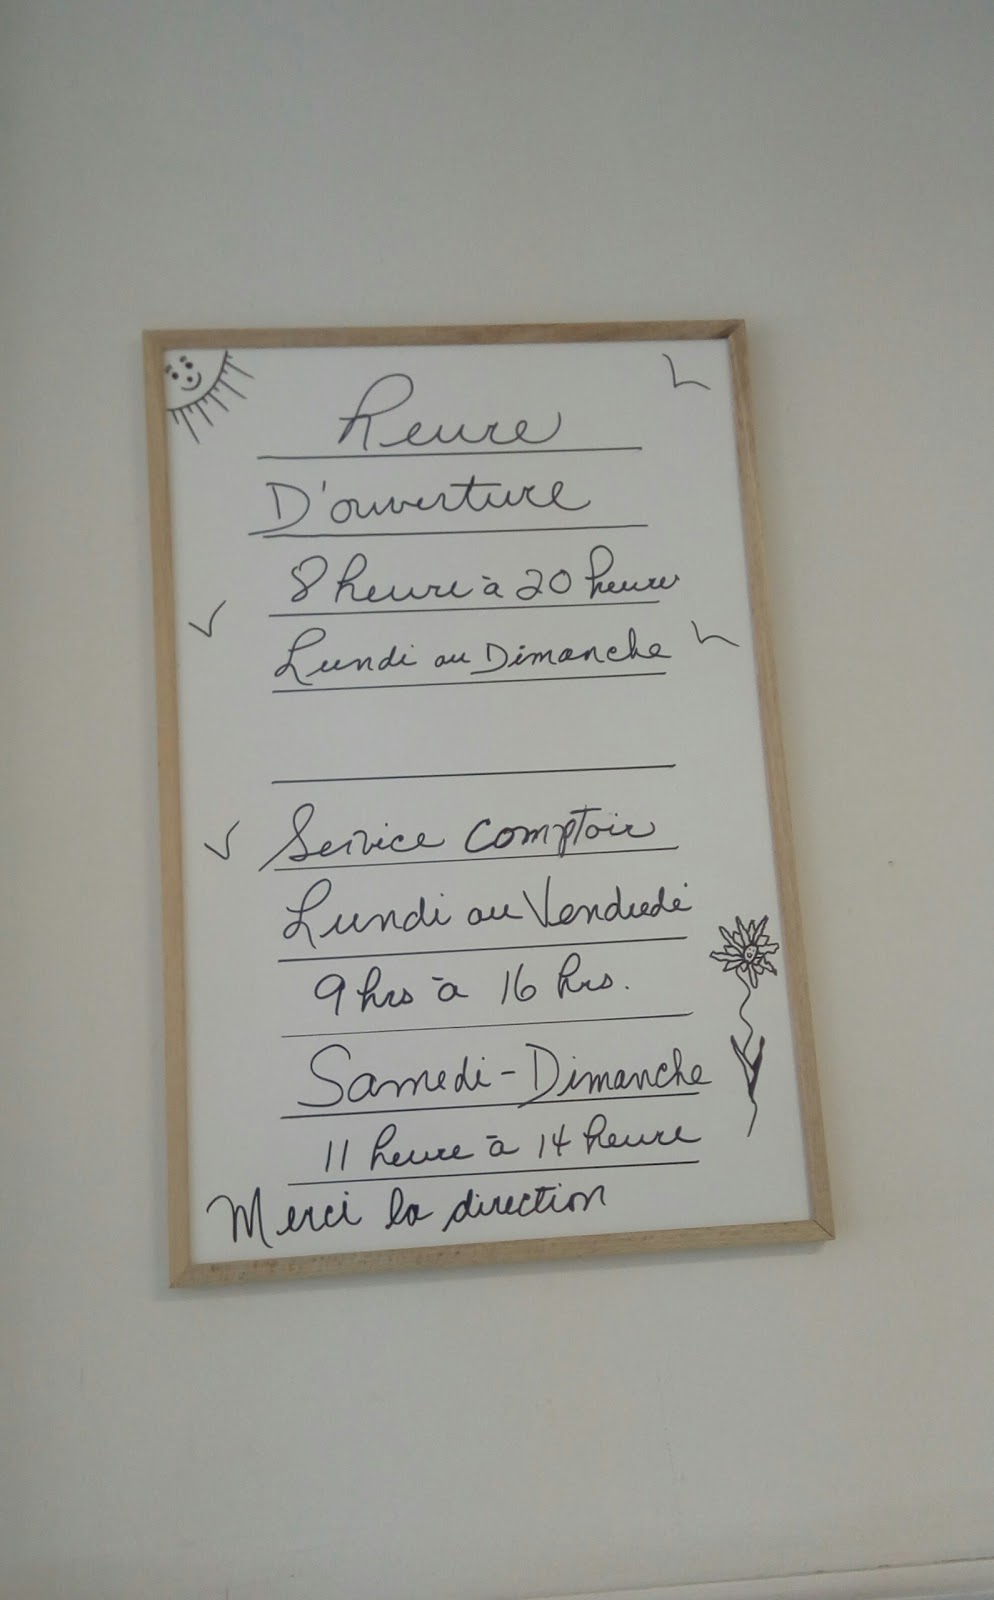 Heure
D'ouverture
8 heure à 20 heure
Lundi au Dimanche
Service Comptoir
Lundi au Vendredi
9 hrs à 16 hrs.
Samedi - Dimanche
11 heure à 14 heure
Merci la direction